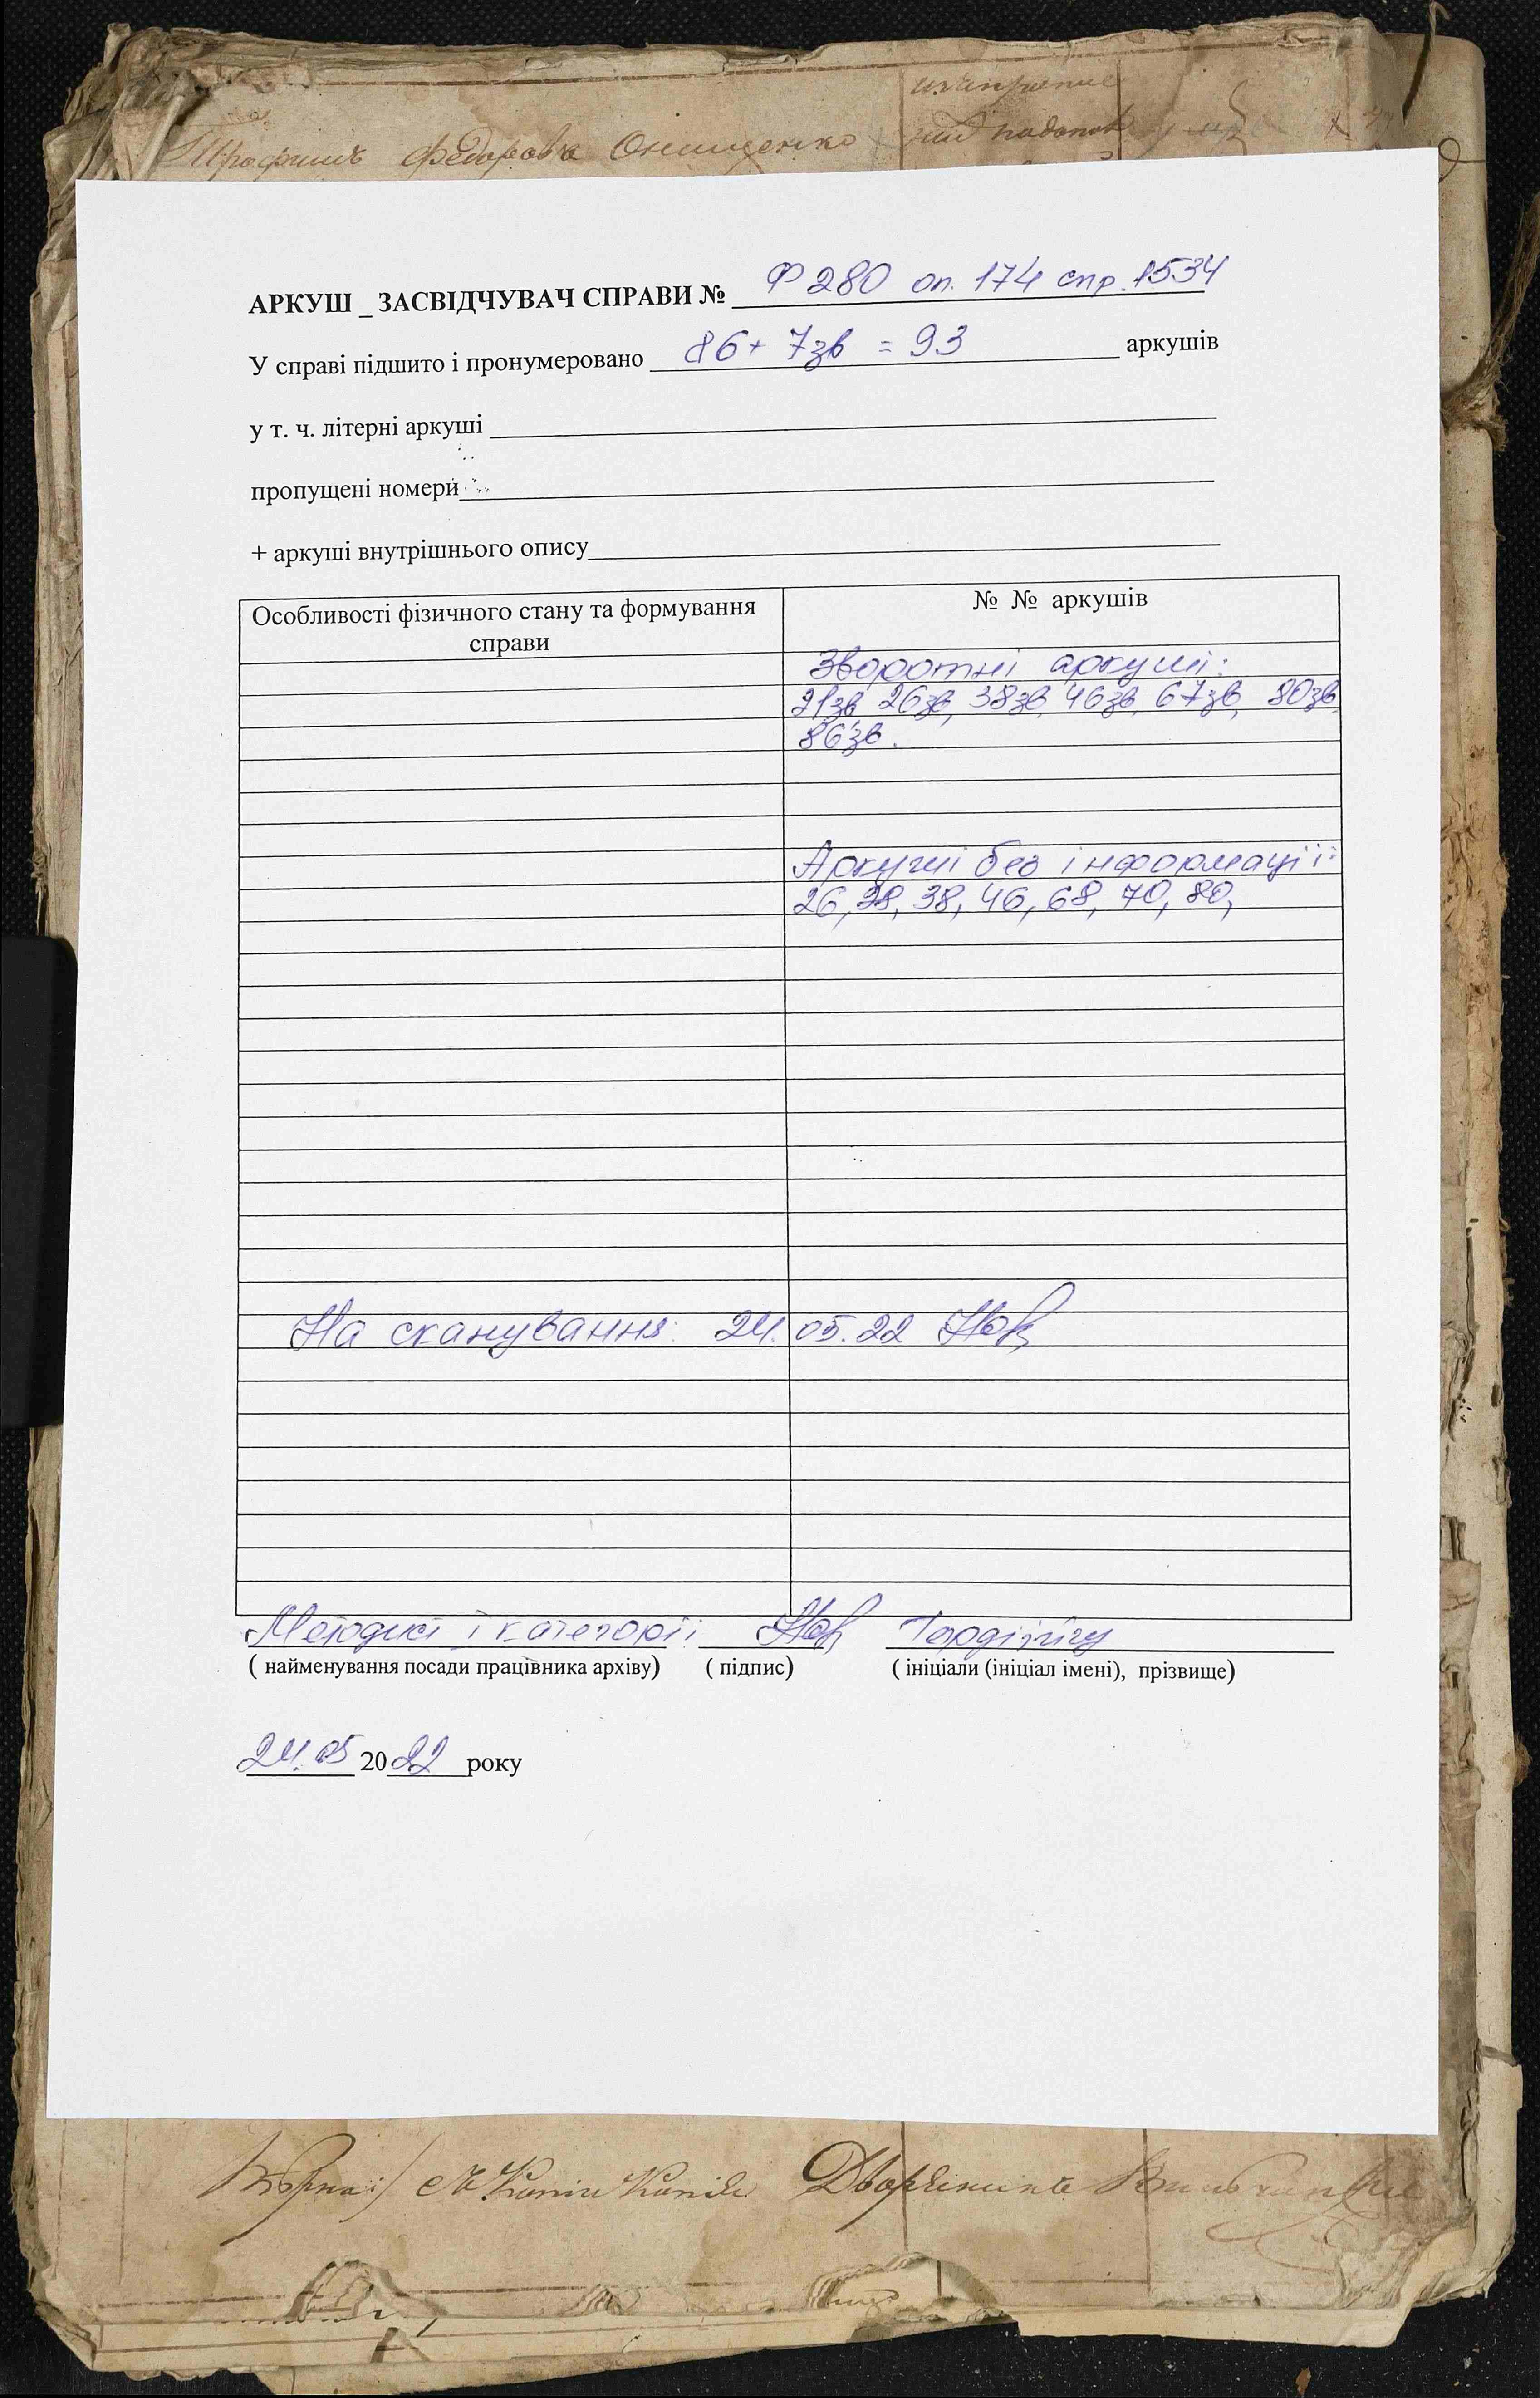 Федорова Онищенко
АРКУШ _ ЗАСВІДЧУВАЧ СПРАВИ № Ф 280 оп. 174 спр. 1534
У справі підшито і пронумеровано 86+ 7зв = 93 аркушів
у т. ч. літерні аркуші
пропущені номери
+ аркуші внутрішнього опису
Особливості фізичного стану та формування справи
№ № аркушів
Зворотні аркуші:
21зв, 26зв, 38зв, 46зв, 67зв, 80зв,
86зв.
Аркуші без інформації:
26, 28, 38, 46, 68, 70, 80,
На сканування: 24.05.22
Методист І категорії
( найменування посади працівника архіву) ( підпис) ( ініціали (ініціал імені), прізвище)
24.05 2022 року